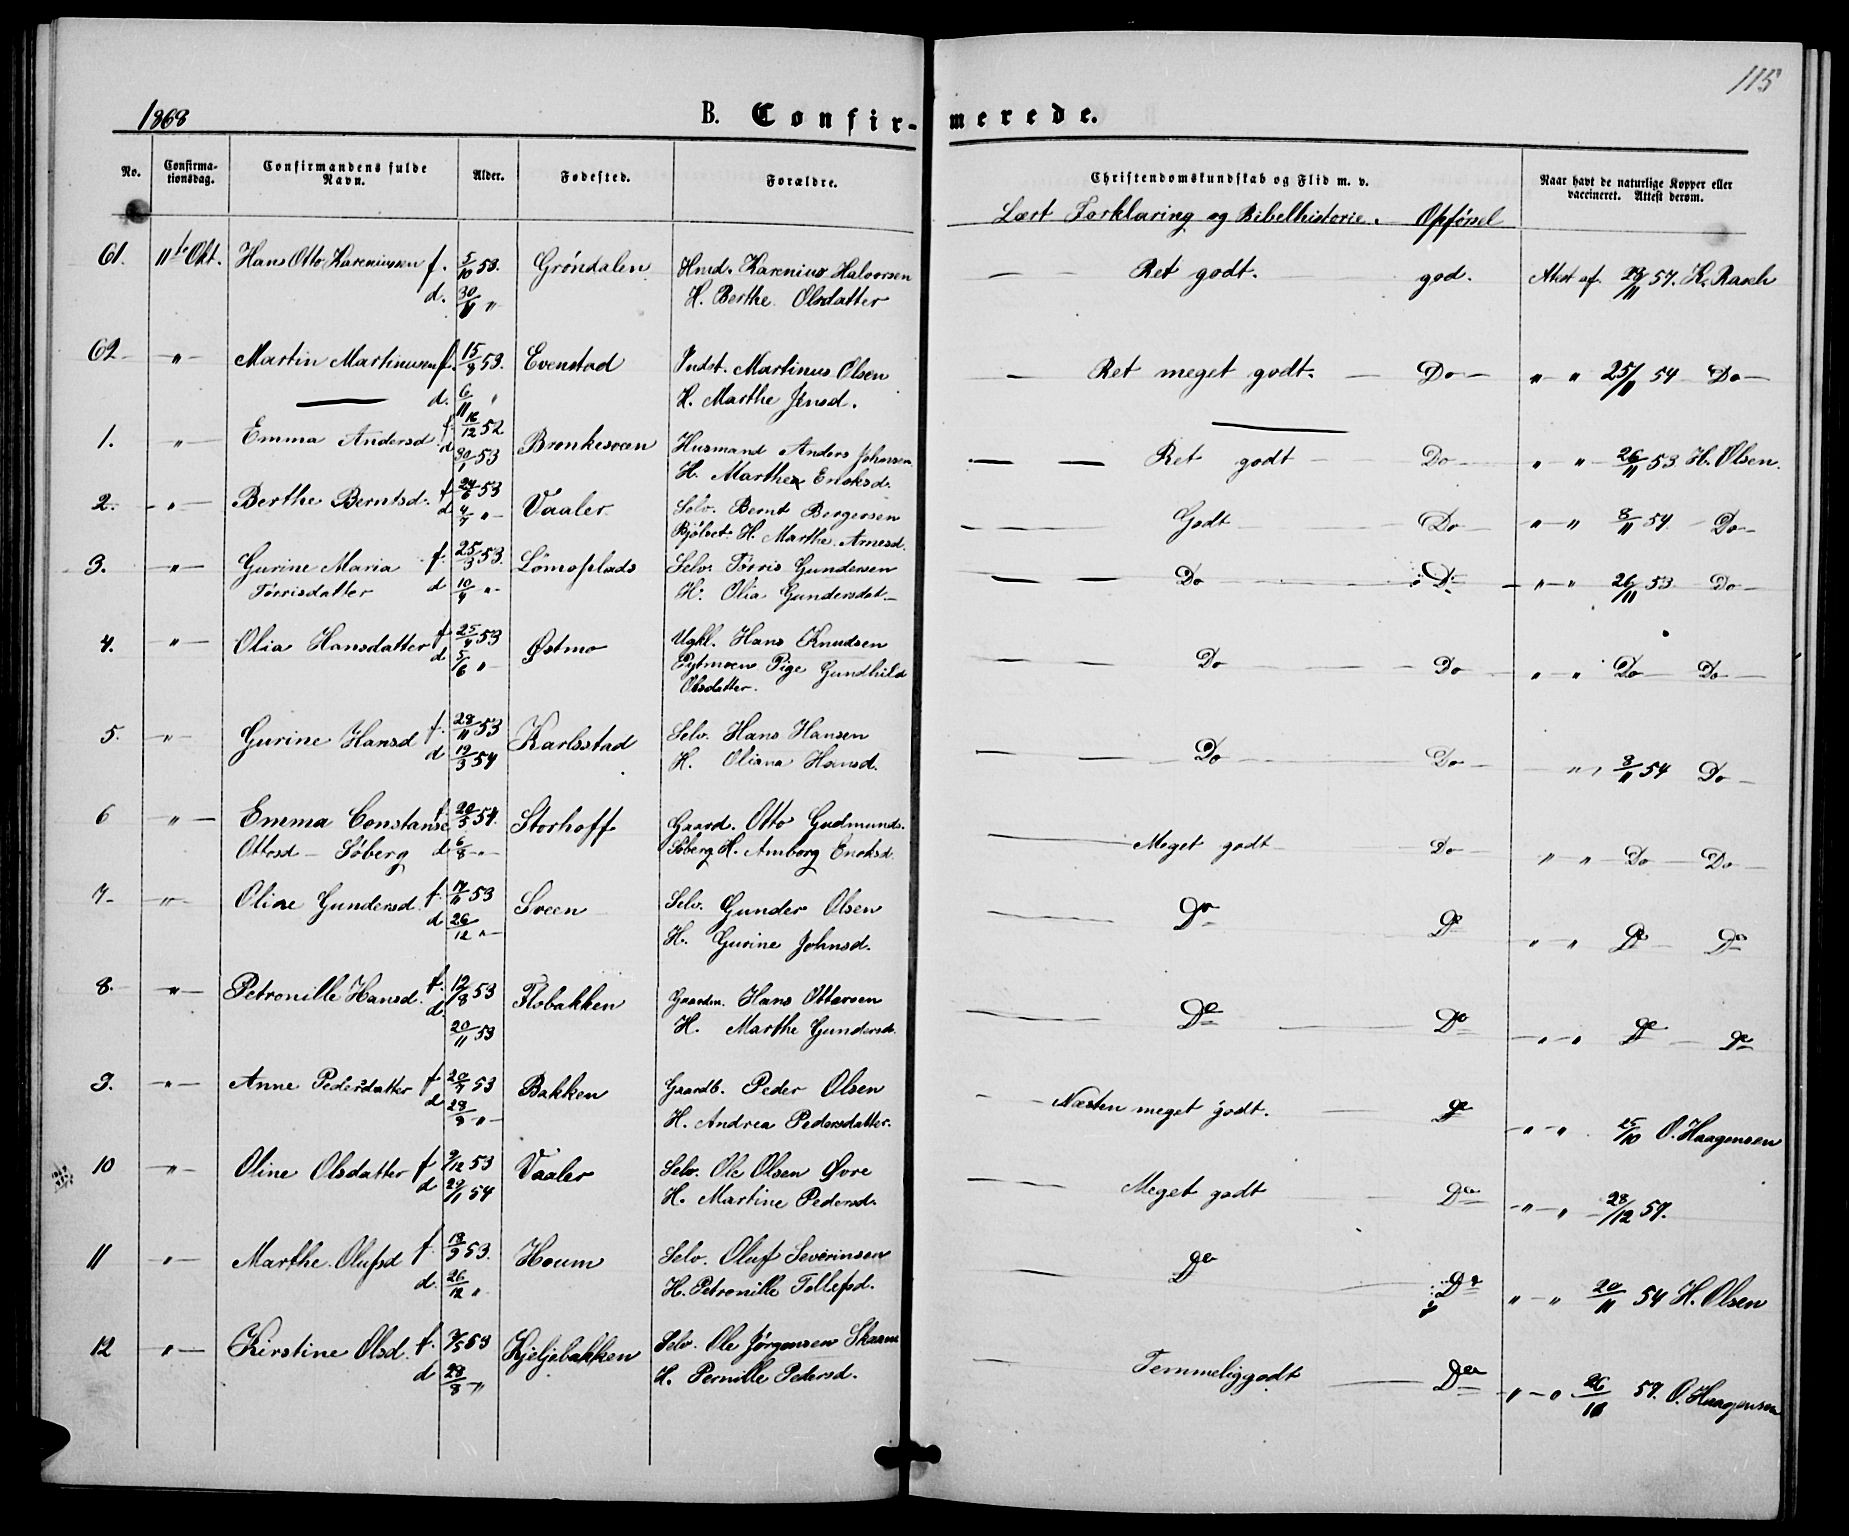 115
1868 B. Confirmerede.
No. Confirmationsdag. Confirmandens fulde Navn. Alder. Fødested. Forældre. Christendomskundskab og Flid m. v. Naar havt de naturlige Kopper eller vaccineret. Attest derom.
Lært Forklaring og Bibelhistorie. Opførsel
61. 11te Okt. Hans Otto Kareniussen f. 5/10 53. Grøndalen Hmd. Karenius Halvorsen — — Ret godt. god. Attest af 57. K. Rasch
d. 30/11 " H. Berthe Olsdatter
62 — " — Martin Martinusen f. 15/8 53. Evenstad Indst. Martinus Olsen — Ret meget godt. — Do — " — " 25/11 54 Do —
d. 6/11 " H. Marthe Jensd.
1. " — Emma Andersd. f. 16/12 52 Bronkesveen Husmand Anders Johnsen — — Ret godt — Do — " — " 26/11 53. H. Olsen.
d 30/1 53 H. Marthe Enoksd.
2. — " — Berthe Berntsd. f. 24/6 53 Vaaler Selv. Bernt Bergersen — — Godt — Do — " — " 8/11 54 — Do —
d. 4/7 " — Bjølset H. Marthe Arnesd.
3. — " — Gurine Maria f. 25/3 53. Lømoplads Selv. Tørris Gundersen — — Do — Do — " — " 26/11 53 Do —
Tørrisdatter d 10/4 " — H. Olia Gundersdat —
4. " — Olia Hansdatter f. 25/4 53 Østmo Ugkl. Hans Knudsen — — Do — Do — " — " Do — Do —
d 5/6 " — Pige Gundhild
Olsdatter.
5. — " — Gurine Hansd f. 28/11 53 Karlsstad Selv. Hans Hansen — — Do — Do — " " 8/11 54 Do —
d 19/3 54 H. Oliana Hansd.
6 — " — Emma Constanse f. 20/5 54. Storhoff Gaard. Otto Gudmunds. — Meget godt — Do — " " Do — Do
Ottosd — Søberg d. 6/8 — " — Søberg H. Amborg Enoksd.
7 — " — Oline Gundersd. f. 17/11 53 Sveen Selv. Gunder Olsen — — Do Do — " — " Do — Do
d 26/12 " — H. Gurine Johnsd.
8. — " — Petronille Hansd. f. 12/8 53 Flobakken Gaardm. Hans Ottersen — — Do — Do — " — " Do — Do
d. 20/11 53 H. Marthe Gundersd.
9. — " — Anne Pedersdatter f. 20/7 53 Bakken Gaardb. Peder Olsen — — Næsten meget godt. — Do — " — " 25/10 O. Haagensen
d. 28/8 " — H. Andrea Pedersdatter.
10 — " — Oline Olsdatter f 9/12 53 Vaaler Selv. Ole Olsen Øvre — — Meget godt Do — " — " 28/12 57.
d 29/1 54 H. Martine Pedersd.
11 — " — Marthe Olufsd f. 53. Houm Selv. Oluf Severinsen — Do Do " — " 20/11 54 H. Olsen
d. 26/12 " H. Petronille Tollefsd.
12 " — Kirstine Olsd. f. 3/5 53 Kjeljebakken Selv. Ole Jørgensen — Temmelig godt — Do — " — " 57. O. Haagensen
d 28/8 — " H. Pernille Pedersd.